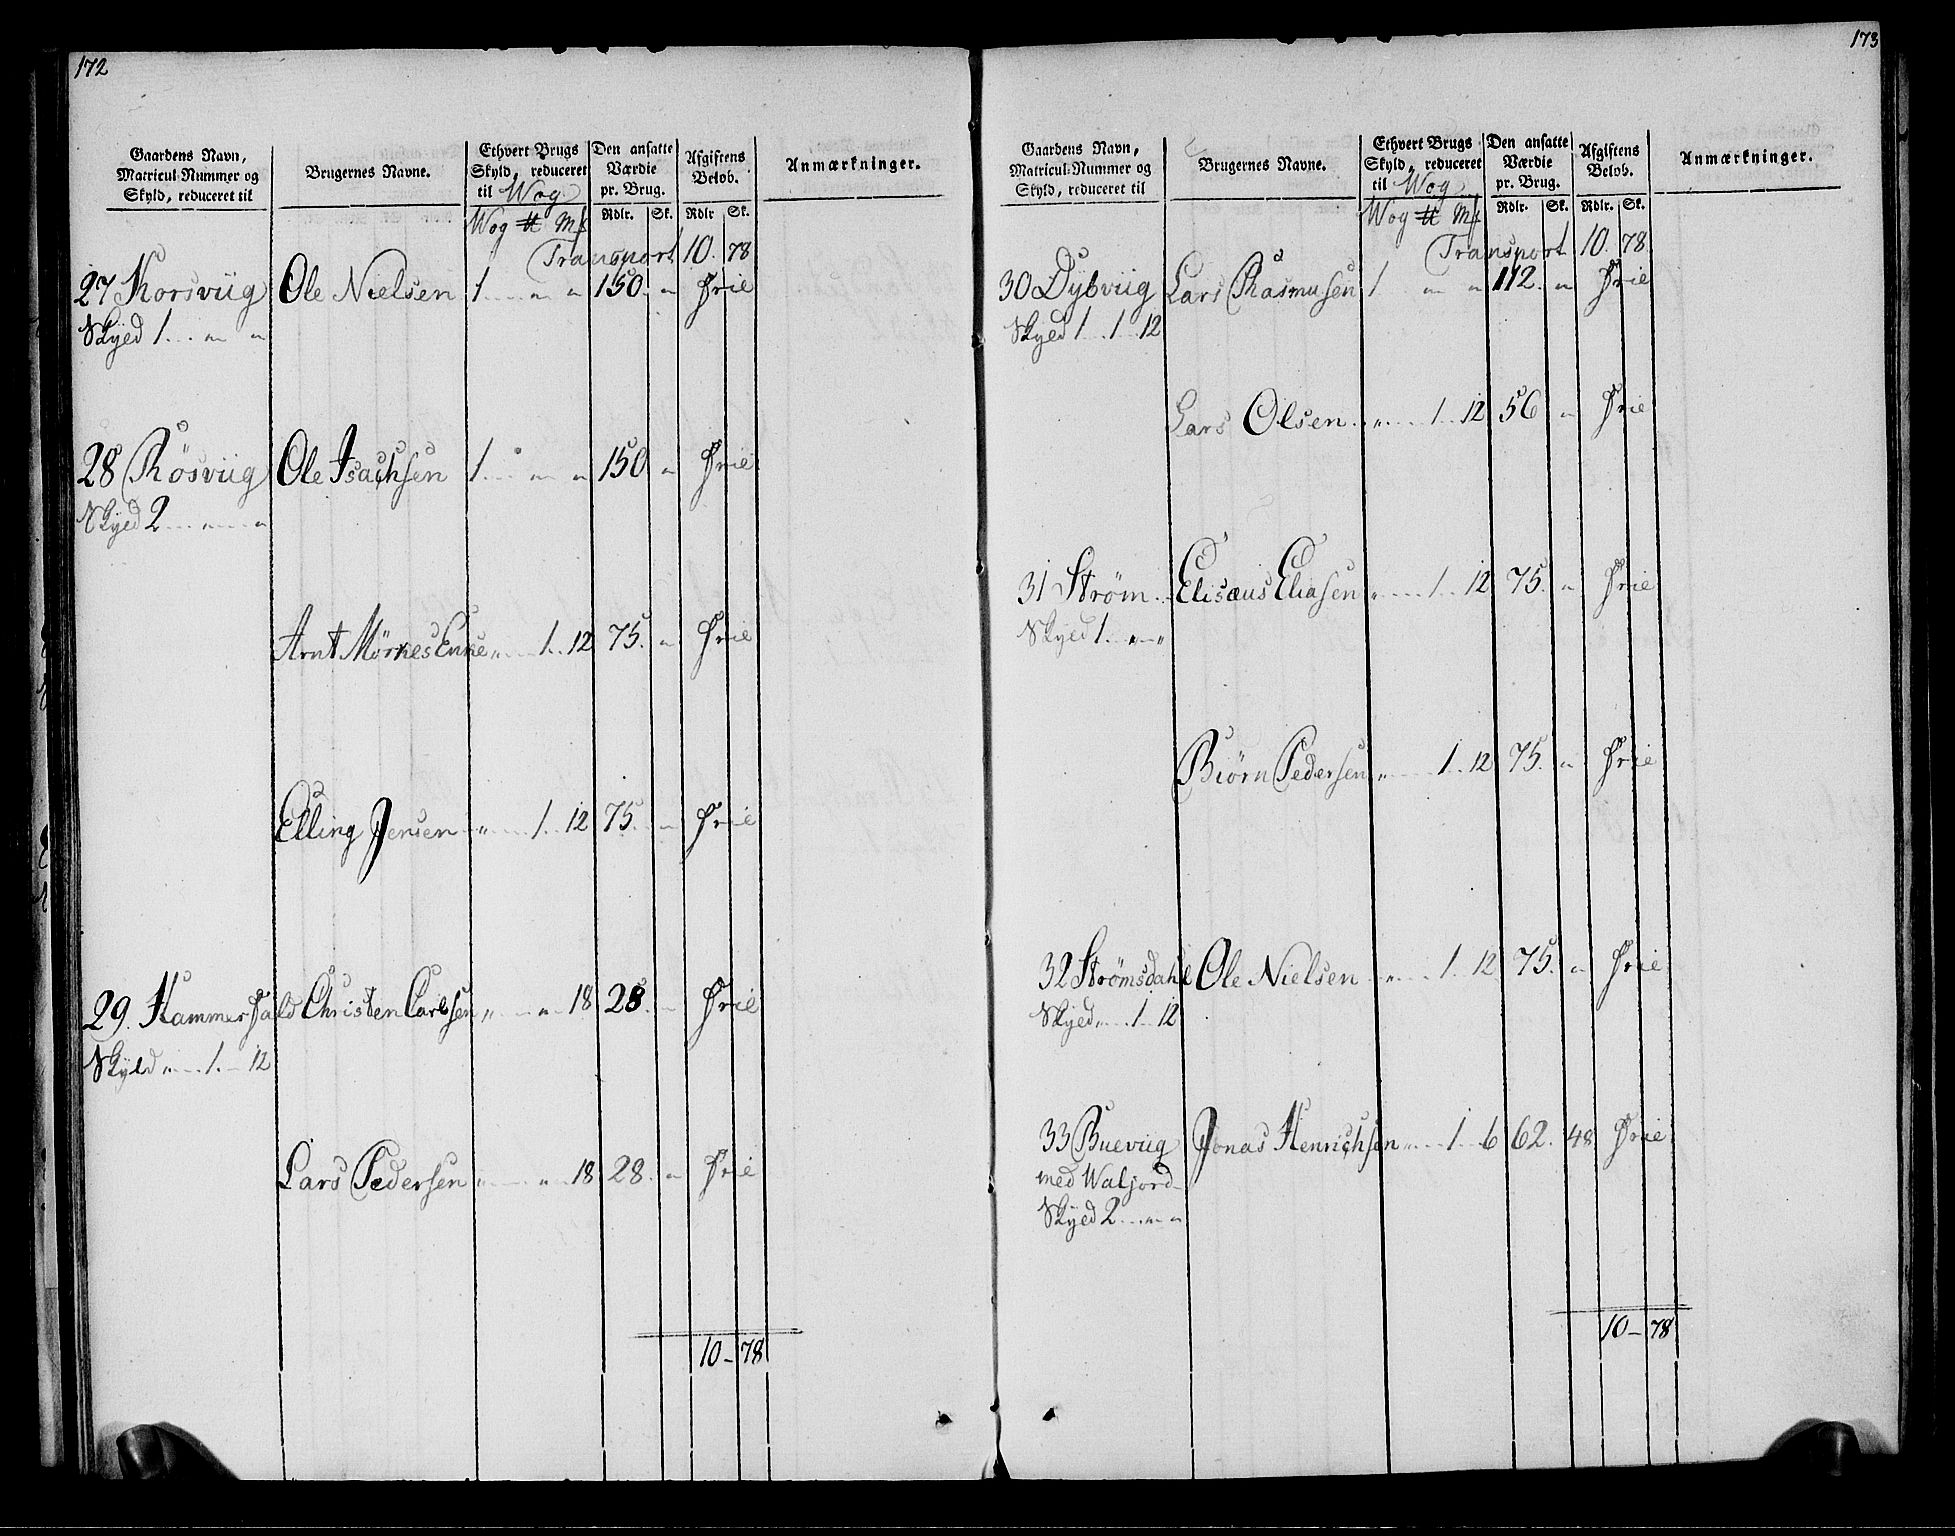 172
Gaardens Navn, Matricul-Nummer og Skyld, reduceret til
Brugernes Navne.
Ethvert Brugs Skyld, reduceret til Wog
Den ansatte Værdie pr. Brug.
Afgiftens Beløb.
Anmærkninger.
Wog ℔ Mk Rdlr. Sk. Rdlr Sk.
Transport 10. 78
27 Korsviig Ole Nielsen 1 .... " " 150. " Frie
Skyed 1 ... " "
28 Røsviig Ole Isachsen 1 .... " " 150 " Frie
Skyed 2 .... " .... "
Arnt Mørkes Enke " .... 1 .. 12 75. " Frie
Elling Jensen " .... 1 .. 12 75. " Frie
29. Hammerfald Christen Carlsen " .... " .. 18 28. " Frie
Skyld " .... 1. — 12
Lars Pedersen " .... " .. 18 28. " Frie
10 — 78
173
Gaardens Navn, Matricul-Nummer og Skyld, reduceret til
Brugernes Navne.
Ethvert Brugs Skyld, reduceret til Wog
Den ansatte Værdie pr. Brug.
Afgiftens Beløb.
Anmærkninger.
Wog ℔ Mk Rdlr. Sk. Rdlr. Sk.
Transport 10. 78
30 Dybviig Lars Rasmusen 1 " " 112. " Frie
Skyed 1 ... 1 .. 12
Lars Olsen " .... 1 .. 12 56 " Frie
31 Strøm Elisæus Eliasen " .... 1 .. 12 75. " Frie
Skyed 1 .. " — "
Biørn Pedersen " .... 1 .. 12 75. " Frie
32 Strømsdahl Ole Nielsen " .... 1 .. 12 75. " Frie
Skyed " .... 1 — 12
33 Bueviig Jonas Henrichsen " .... 1 .. 6 62. 48 Frie
med Waljord
Skyed 2 .... " — "
10 — 78